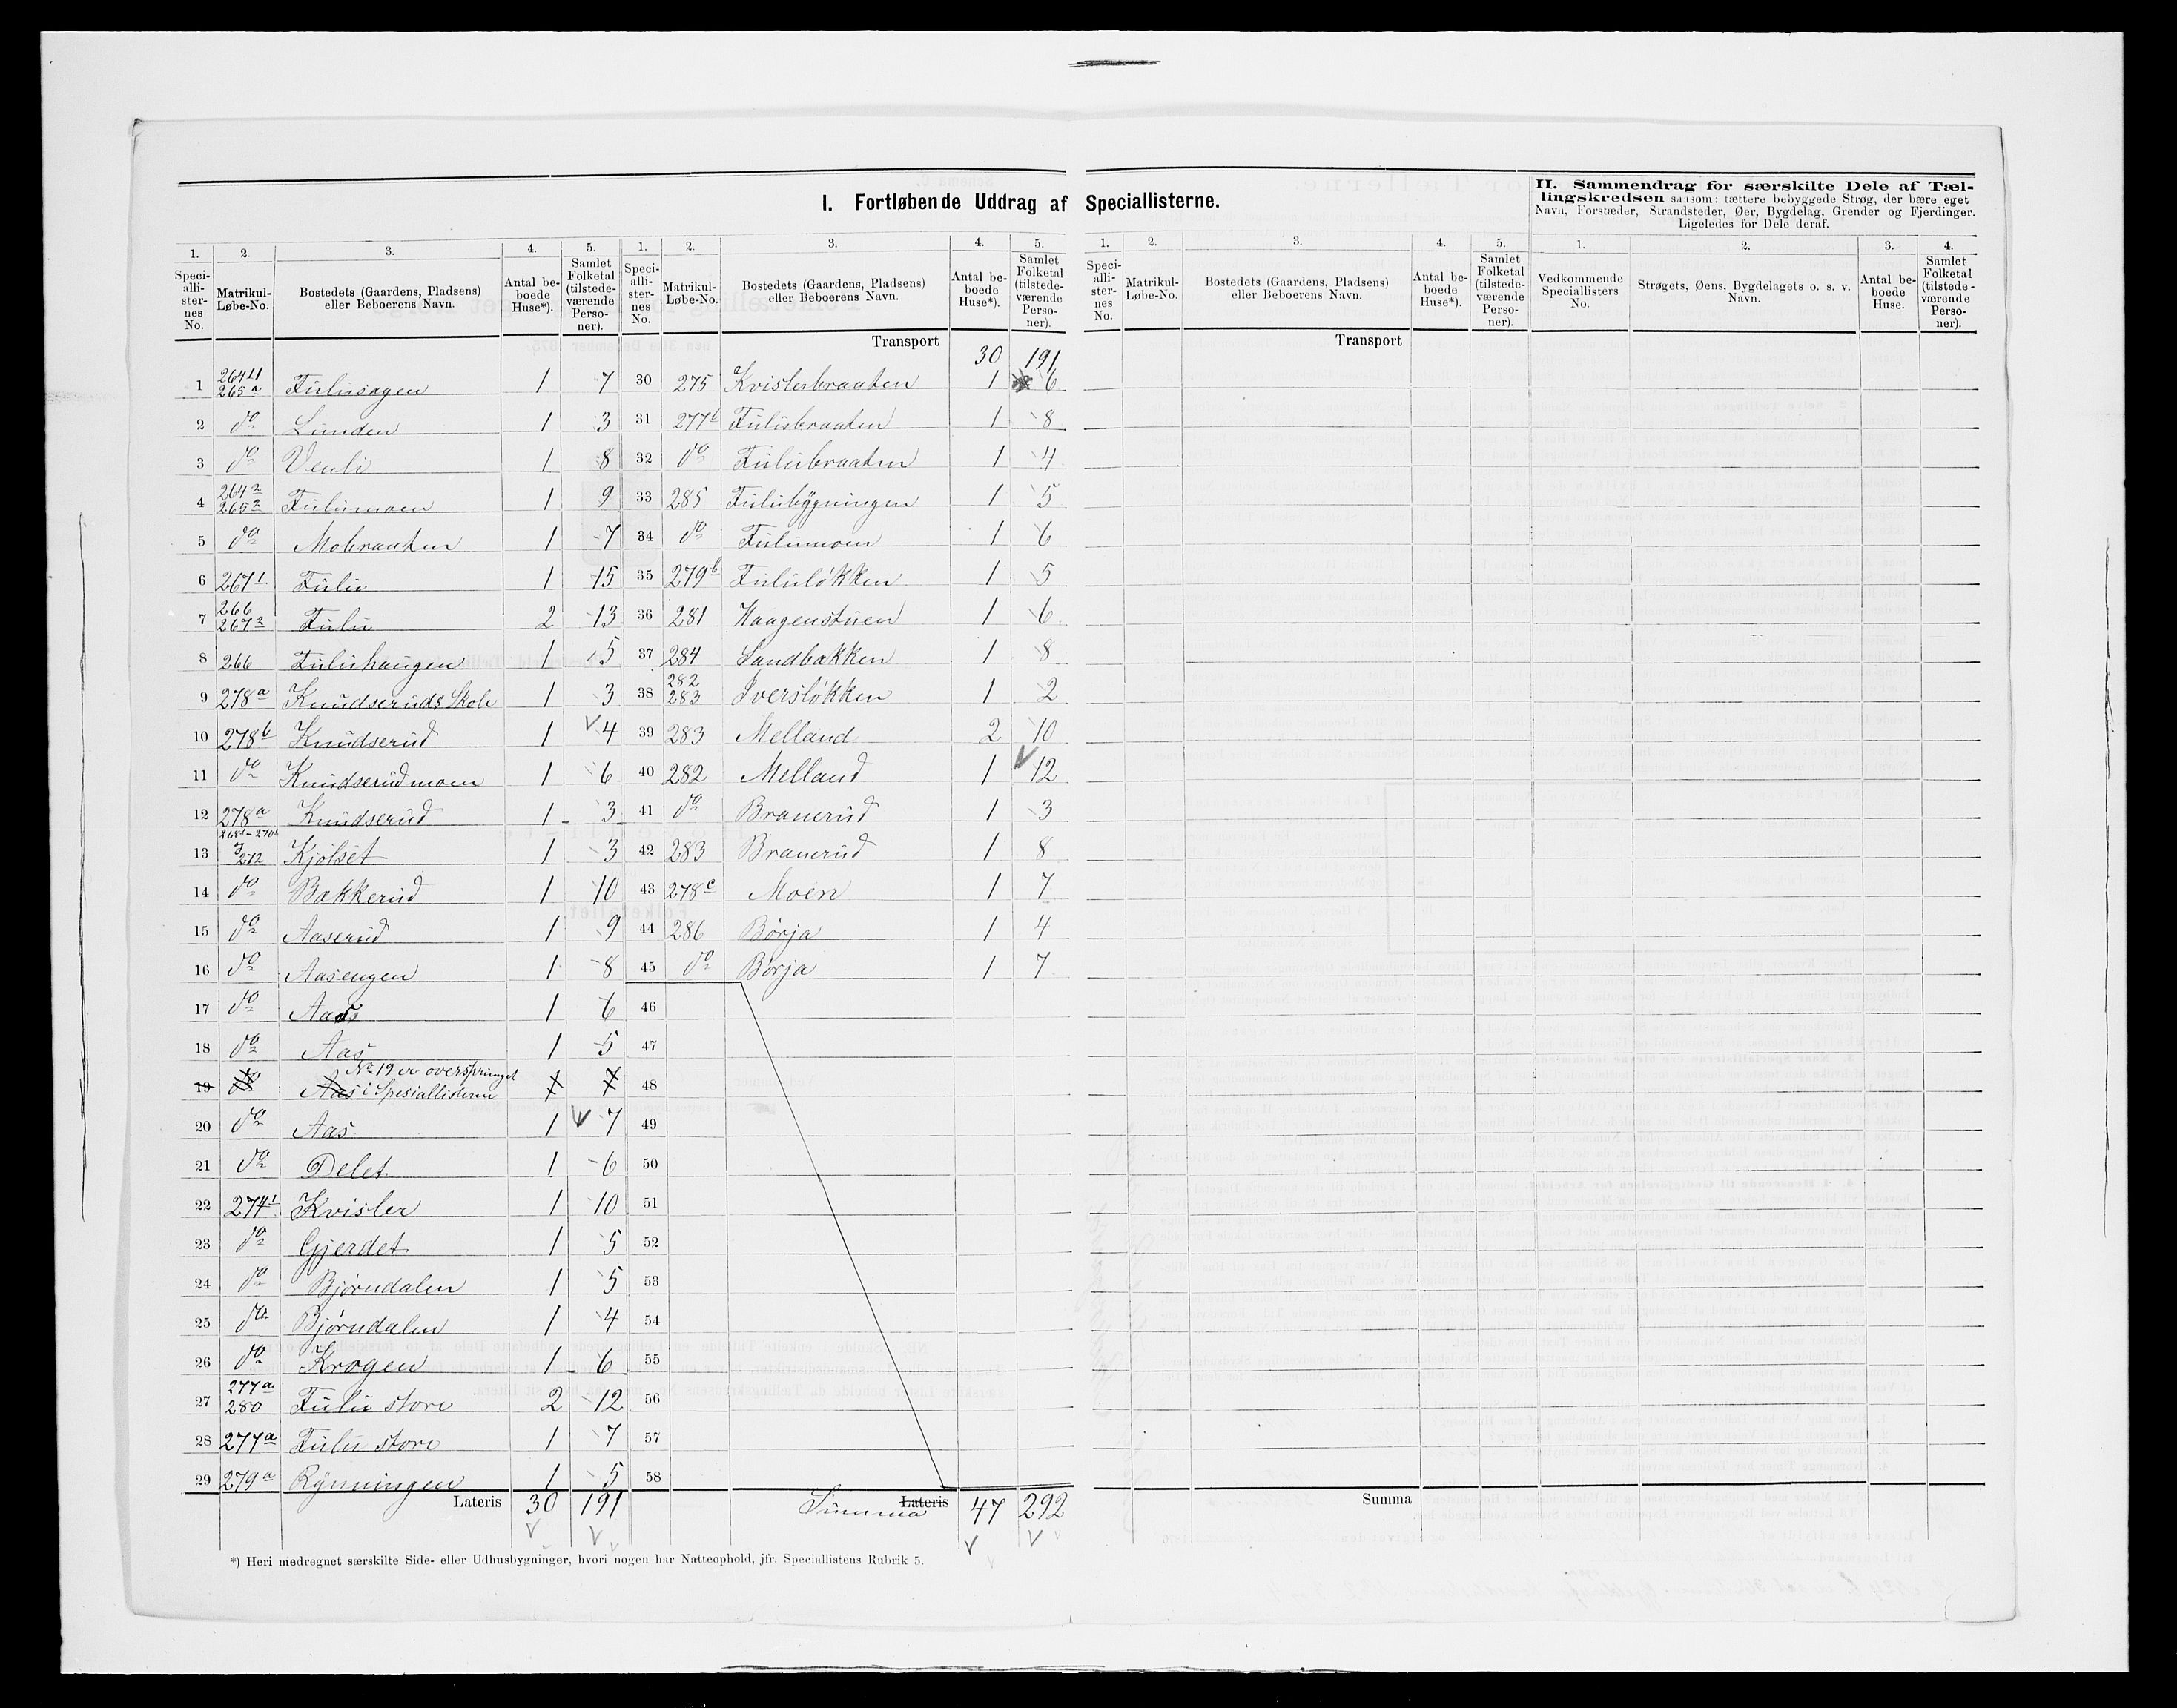 I. Fortløbende Uddrag af Speciallisterne.
II. Sammendrag for særskilte Dele af Tællingskredsen saasom: tættere bebyggede Strøg, der bære eget Navn, Forstæder, Strandsteder, Øer, Bygdelag, Grender og Fjerdinger. Ligeledes for Dele deraf.
1. 2. 3. 4. 5. 1. 2. 3. 4. 5. 1. 2. 3. 4. 5. 1. 2. 3. 4.
Speciallisternes No. Matrikul-Løbe-No. Bostedets (Gaardens, Pladsens) eller Beboerens Navn. Antal beboede Huse*). Samlet Folketal (tilstedeværende Personer).
Speciallisternes No. Matrikul-Løbe-No. Bostedets (Gaardens, Pladsens) eller Beboerens Navn. Antal beboede Huse*). Samlet Folketal (tilstedeværende Personer).
Speciallisternes No. Matrikul-Løbe-No. Bostedets (Gaardens, Pladsens) eller Beboerens Navn. Antal beboede Huse*). Samlet Folketal (tilstedeværende Personer).
Vedkommende Speciallisters No. Strøgets, Øens, Bygdelagets o. s. v. Navn. Antal beboede Huse. Samlet Folketal (tilstedeværende Personer).
1 265a Fulusagen 1 7
2 do Lunden 1 3
3 do Venli 1 8
4 264 2 265 2 Fulumoen 1 9
5 do Mobraaten 1 7
6 267 1 Fulu 1 15
7 266 267 2 Fulu 2 13
8 266 Fuluhaugen 1 5
9 278a Knudseruds Skole 1 3
10 278b Knudserud 1 4
11 do Knudserudmoen 1 6
12 278a Knudserud 1 3
13 272 Kjölset 1 3
14 do Bakkerud 1 10
15 do Aaserud 1 9
16 do Aasengen 1 8
17 do Aas 1 6
18 do Aas 1 5
19 do Aas 1 7
No 19 er oversprunget i Spesiallisteren
20 do Aas 1 7
21 do Delet 1 6
22 274 1 Kvisler 1 10
23 do Gjerdet 1 5
24 do Bjørndalen 1 5
25 do Bjørndalen 1 4
26 do Krogen 1 6
27 277a 280 Fulu store 2 12
28 277a Fulu store 1 7
29 279a Rynningen 1 5
Lateris 30 191
Transport 30 191
30 275 Kvislerbraaten 1 6
31 277b Fulubraaten 1 8
32 do Fulubraaten 1 4
33 285 Fulubygningen 1 5
34 do Fulumoen 1 6
35 279b Fululøkken 1 5
36 281 Haagenstuen 1 6
37 284 Sandbakken 1 8
38 282 283 Iversløkken 1 2
39 283 Melland 2 10
40 282 Melland 1 12
41 do Branerud 1 3
42 283 Branerud 1 8
43 278c Moen 1 7
44 286 Børja 1 4
45 do Børja 1 7
46
47
48
49
50
51
52
53
54
55
56
57
58
Lateris Summa 47 292
Transport
Summa
*) Heri medregnet særskilte Side- eller Udhusbygninger, hvori nogen har Natteophold, jfr. Speciallistens Rubrik 5.